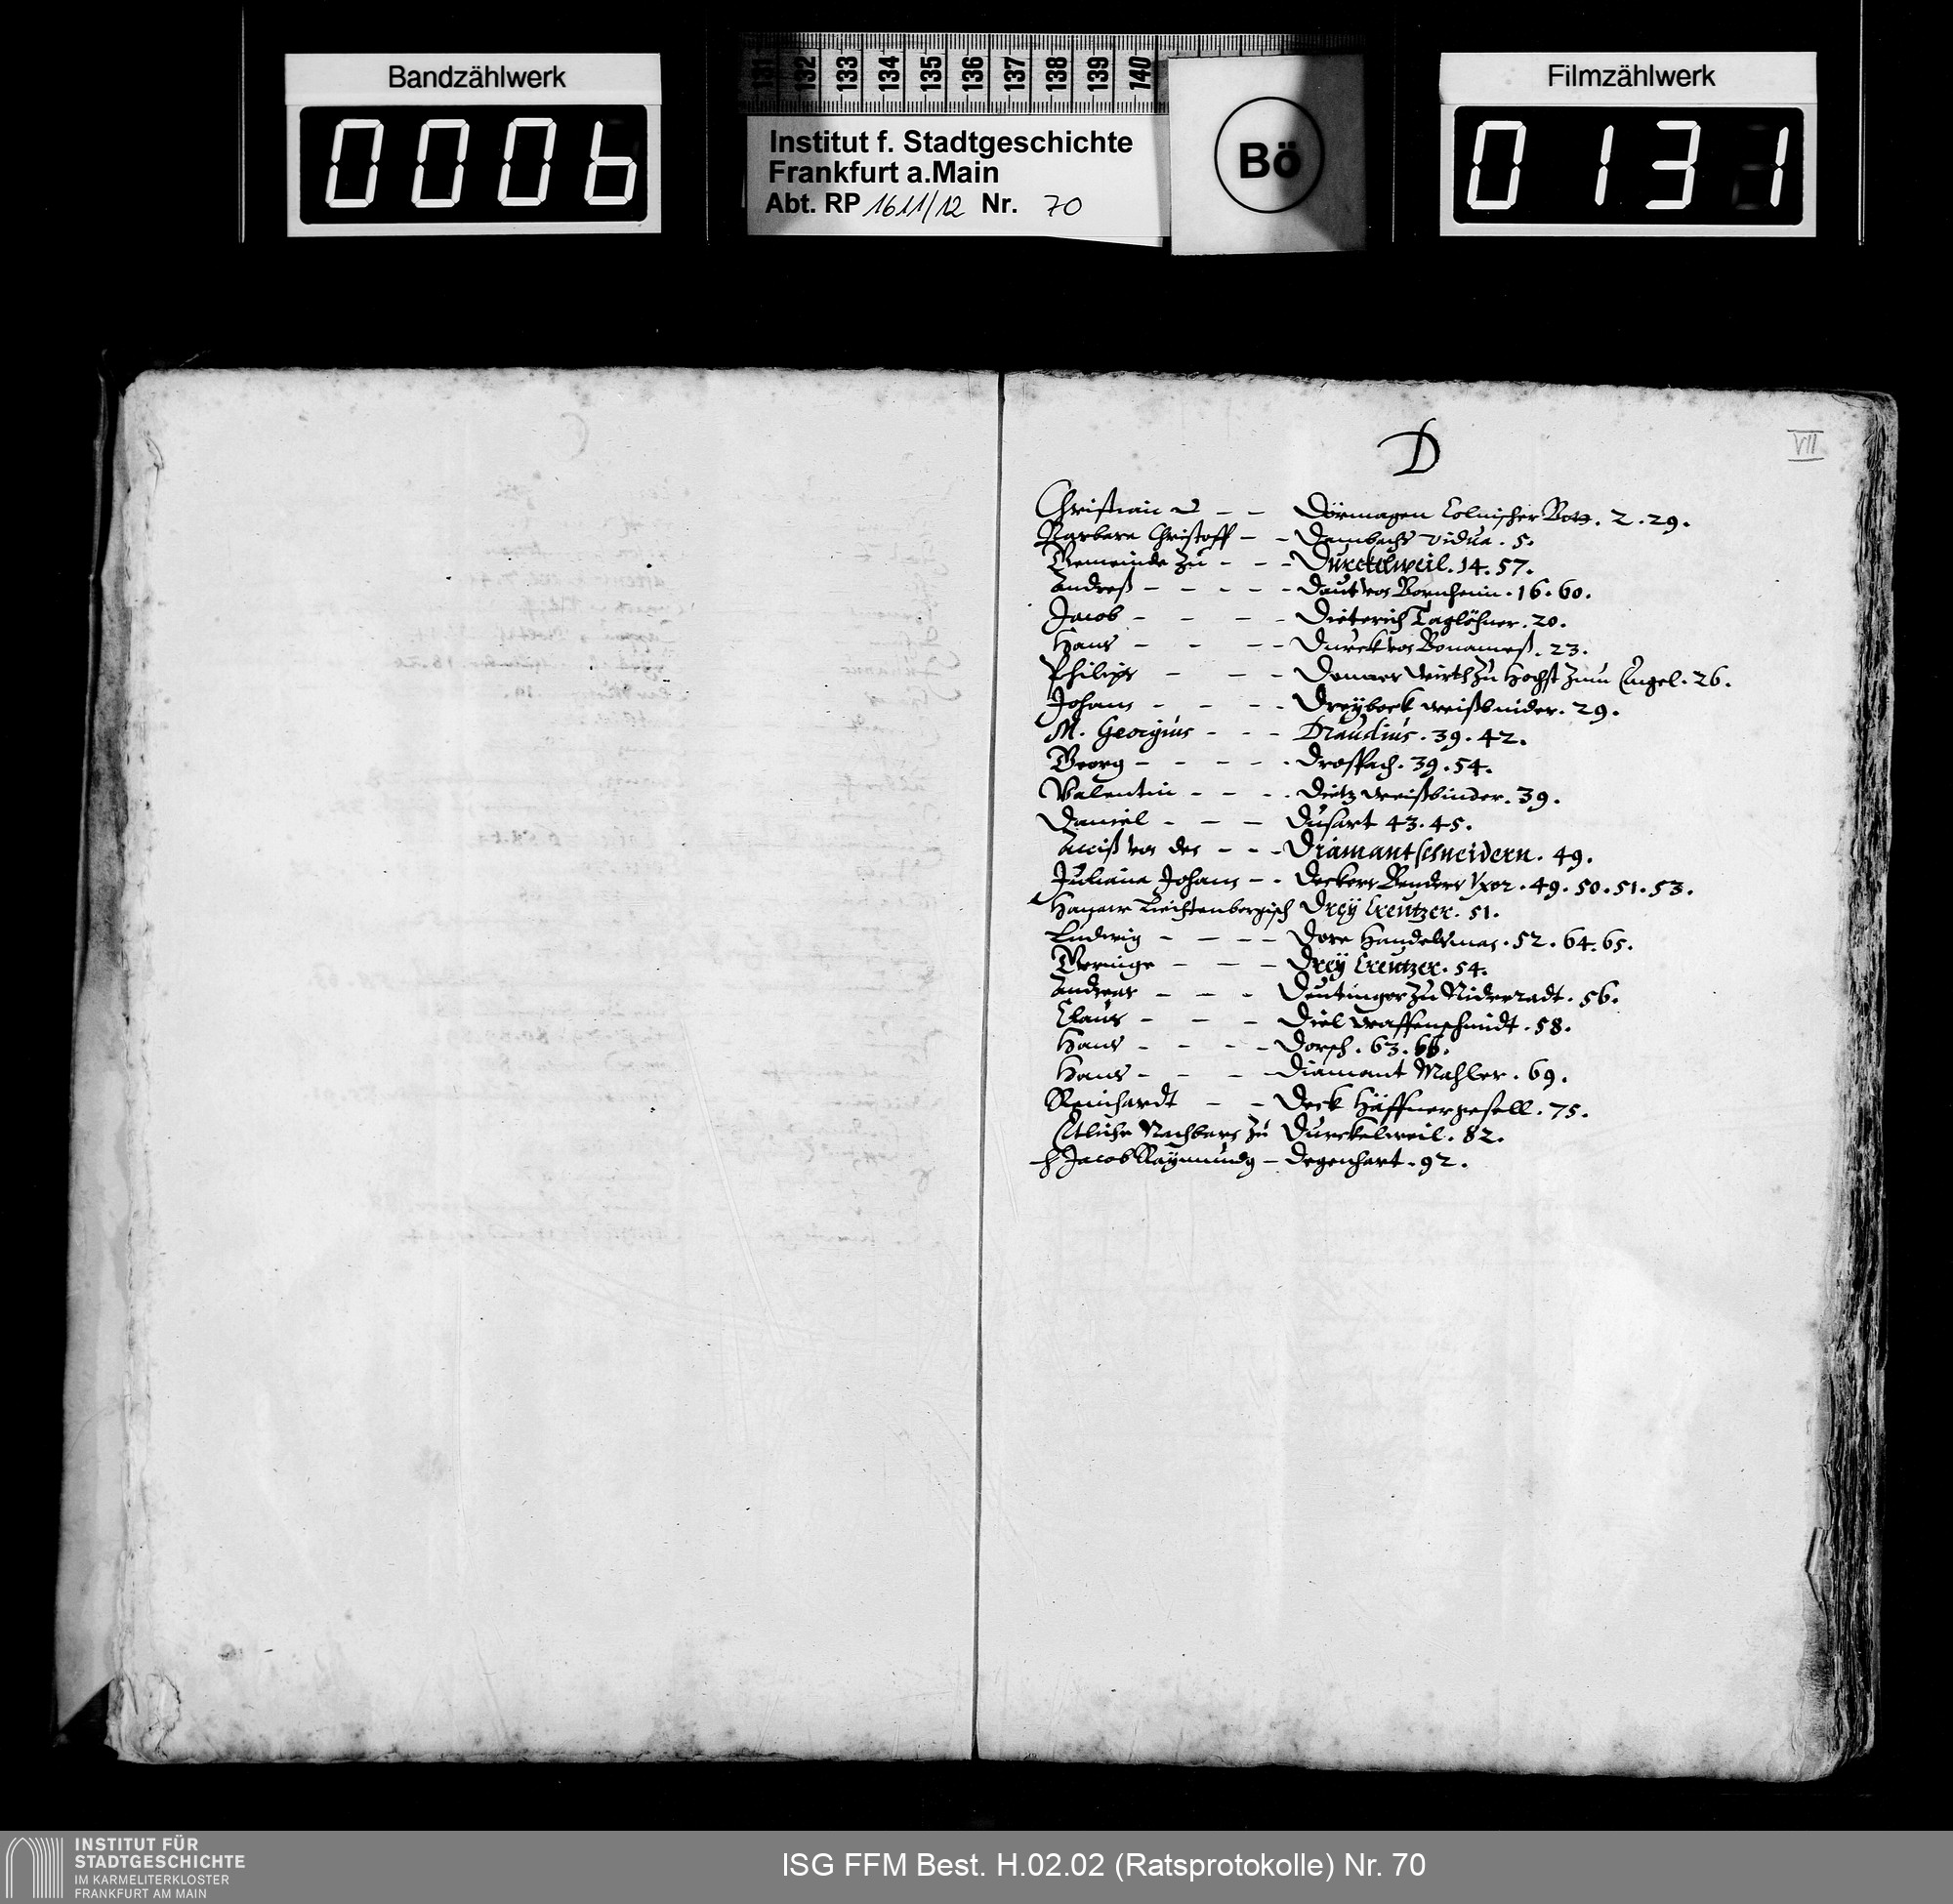 Bandzählwerk
0006
131 132 133 134 135 136 137 138 139 140
Institut f. Stadtgeschichte
Frankfurt a.Main
Abt. RP 1611/12 Nr. 70
Bö
Filmzählwerk
0131
VII
D
Christian - - Dörmagen Colnischer Bott. 2. 29.
Barbara Christoff - - Dambachs vidua. 5.
Gemeinde zu - - - Durckelweil. 14. 57.
Andreß - - - - - Daut von Bornheim. 16. 60.
Jacob - - - - Dieterich Taglöhner. 20.
Hans - - - - Durck von Bonameß. 23.
Philips - - - Donner Wirth zu Höchst zum Engel. 26.
Johans - - - - Dreybock weißbinder. 29.
M. Georgius - - - Draudius. 39. 42.
Georg - - - - - Drospach. 39. 54.
Valentin - - - - Dietz weißbinder. 39.
Daniel - - - Dusart 43. 45.
von den - - - Diamantschneidern. 49.
Juliana Johans - - Deckers Benders Uxor. 49. 50. 51. 53.
Hanaw Liechtenbergisch Drey Creutzer. 51.
Ludwig - - - - Dore Handelsman. 52. 64. 65.
Geringe - - - Drey Creutzer. 54.
Andreas - - - Deutinger zu Niderradt. 56.
Claus - - - Diel Waffenschmidt. 58.
Hans - - - - Dorsch. 63. 66.
Hans - - - - Diamant Mahler. 69.
Reinhardt - - Deck Häffnergesell. 75.
Etliche Nachbarn zu Durckelweil. 82.
H Jacob Raymundq - Degenhart. 92.
INSTITUT FÜR
STADTGESCHICHTE
IM KARMELITERKLOSTER
FRANKFURT AM MAIN
ISG FFM Best. H.02.02 (Ratsprotokolle) Nr. 70